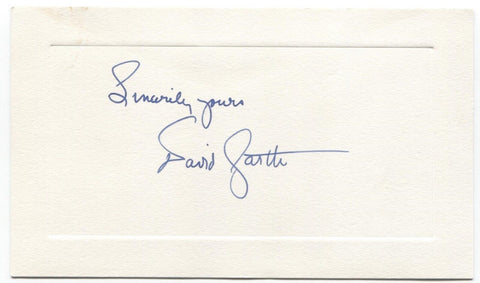 Sincerely yours
David Garth